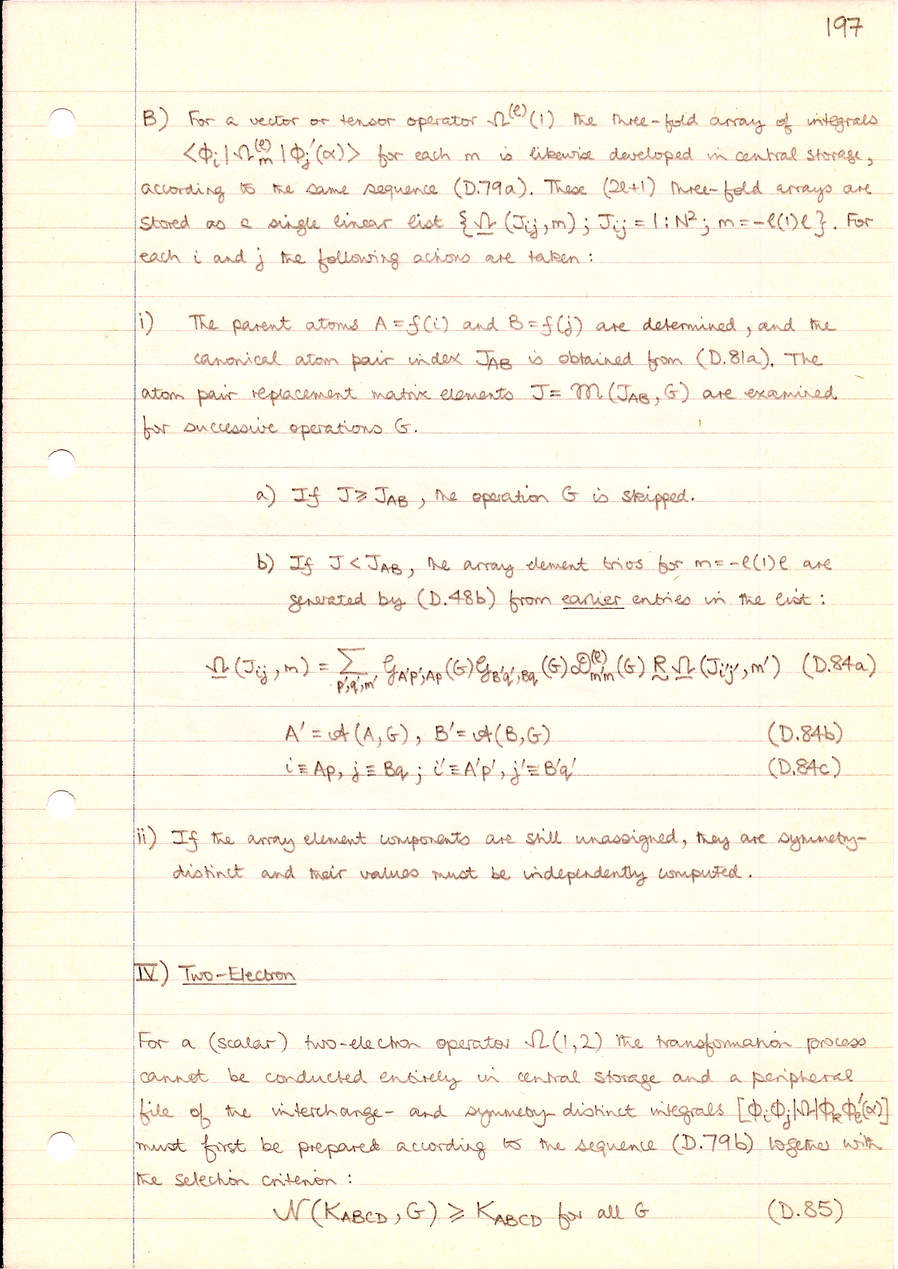 197
B) For a vector or tensor operator Ω^(ℓ)(1) the three-fold array of integrals
<ϕᵢ|Ωₘ^(ℓ)|ϕⱼ′(α)> for each m is likewise developed in central storage,
according to the same sequence (D.79a). These (2ℓ+1) three-fold arrays are
stored as a single linear list {Ω(J_ij, m) ; J_ij = 1:N² ; m = -ℓ(1)ℓ}. For
each i and j the following actions are taken :
i) The parent atoms A = f(i) and B = f(j) are determined, and the
canonical atom pair index J_AB is obtained from (D.81a). The
atom pair replacement matrix elements J = M(J_AB, G) are examined
for successive operations G.
a) If J ⩾ J_AB, the operation G is skipped.
b) If J < J_AB, the array element trios for m = -ℓ(1)ℓ are
generated by (D.48b) from earlier entries in the list :
Ω(J_ij, m) = ∑_p′,q′,m′ 𝒢_A′p′,Ap(G) 𝒢_B′q′,Bq(G) 𝒟^(ℓ)_m′m(G) R Ω(J_i′j′, m′) (D.84a)
A′ = 𝒜(A,G), B′ = 𝒜(B,G) (D.84b)
i ≡ Ap, j ≡ Bq ; i′ ≡ A′p′, j′ ≡ B′q′ (D.84c)
ii) If the array element components are still unassigned, they are symmetry-
distinct and their values must be independently computed.
IV) Two-Electron
For a (scalar) two-electron operator Ω(1,2) the transformation process
cannot be conducted entirely in central storage and a peripheral
file of the interchange- and symmetry-distinct integrals [ϕᵢϕⱼ|Ω|ϕₖϕ_ℓ′(α)]
must first be prepared according to the sequence (D.79b) together with
the selection criterion :
𝒩(K_ABCD, G) ⩾ K_ABCD for all G (D.85)